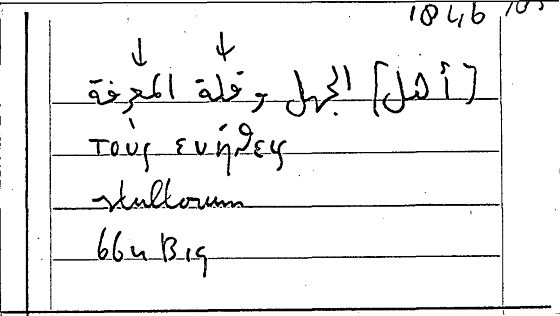 1846
[أهل] الجهل وقلة المعرفة
τοὺς εὐήθεις
stultorum
66u B19